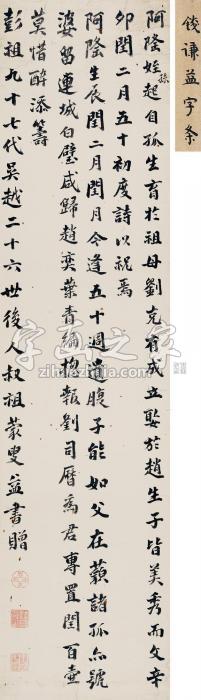 錢謙益字条
阿隆姪孫起自孤生育於祖母劉克有成立娶於趙生子皆美秀而文辛
卯閏二月五十初度詩以祝焉
阿隆生辰閏二月閏月今逢五十週遺腹子能如父在藐諸孤亦號
婆留連城白璧咸歸趙奕葉青緗報劉司曆為君專置閏百壺
莫惜醉添籌
彭祖九十七代吳越二十六世後人叔祖蒙叟益書贈
字画之家